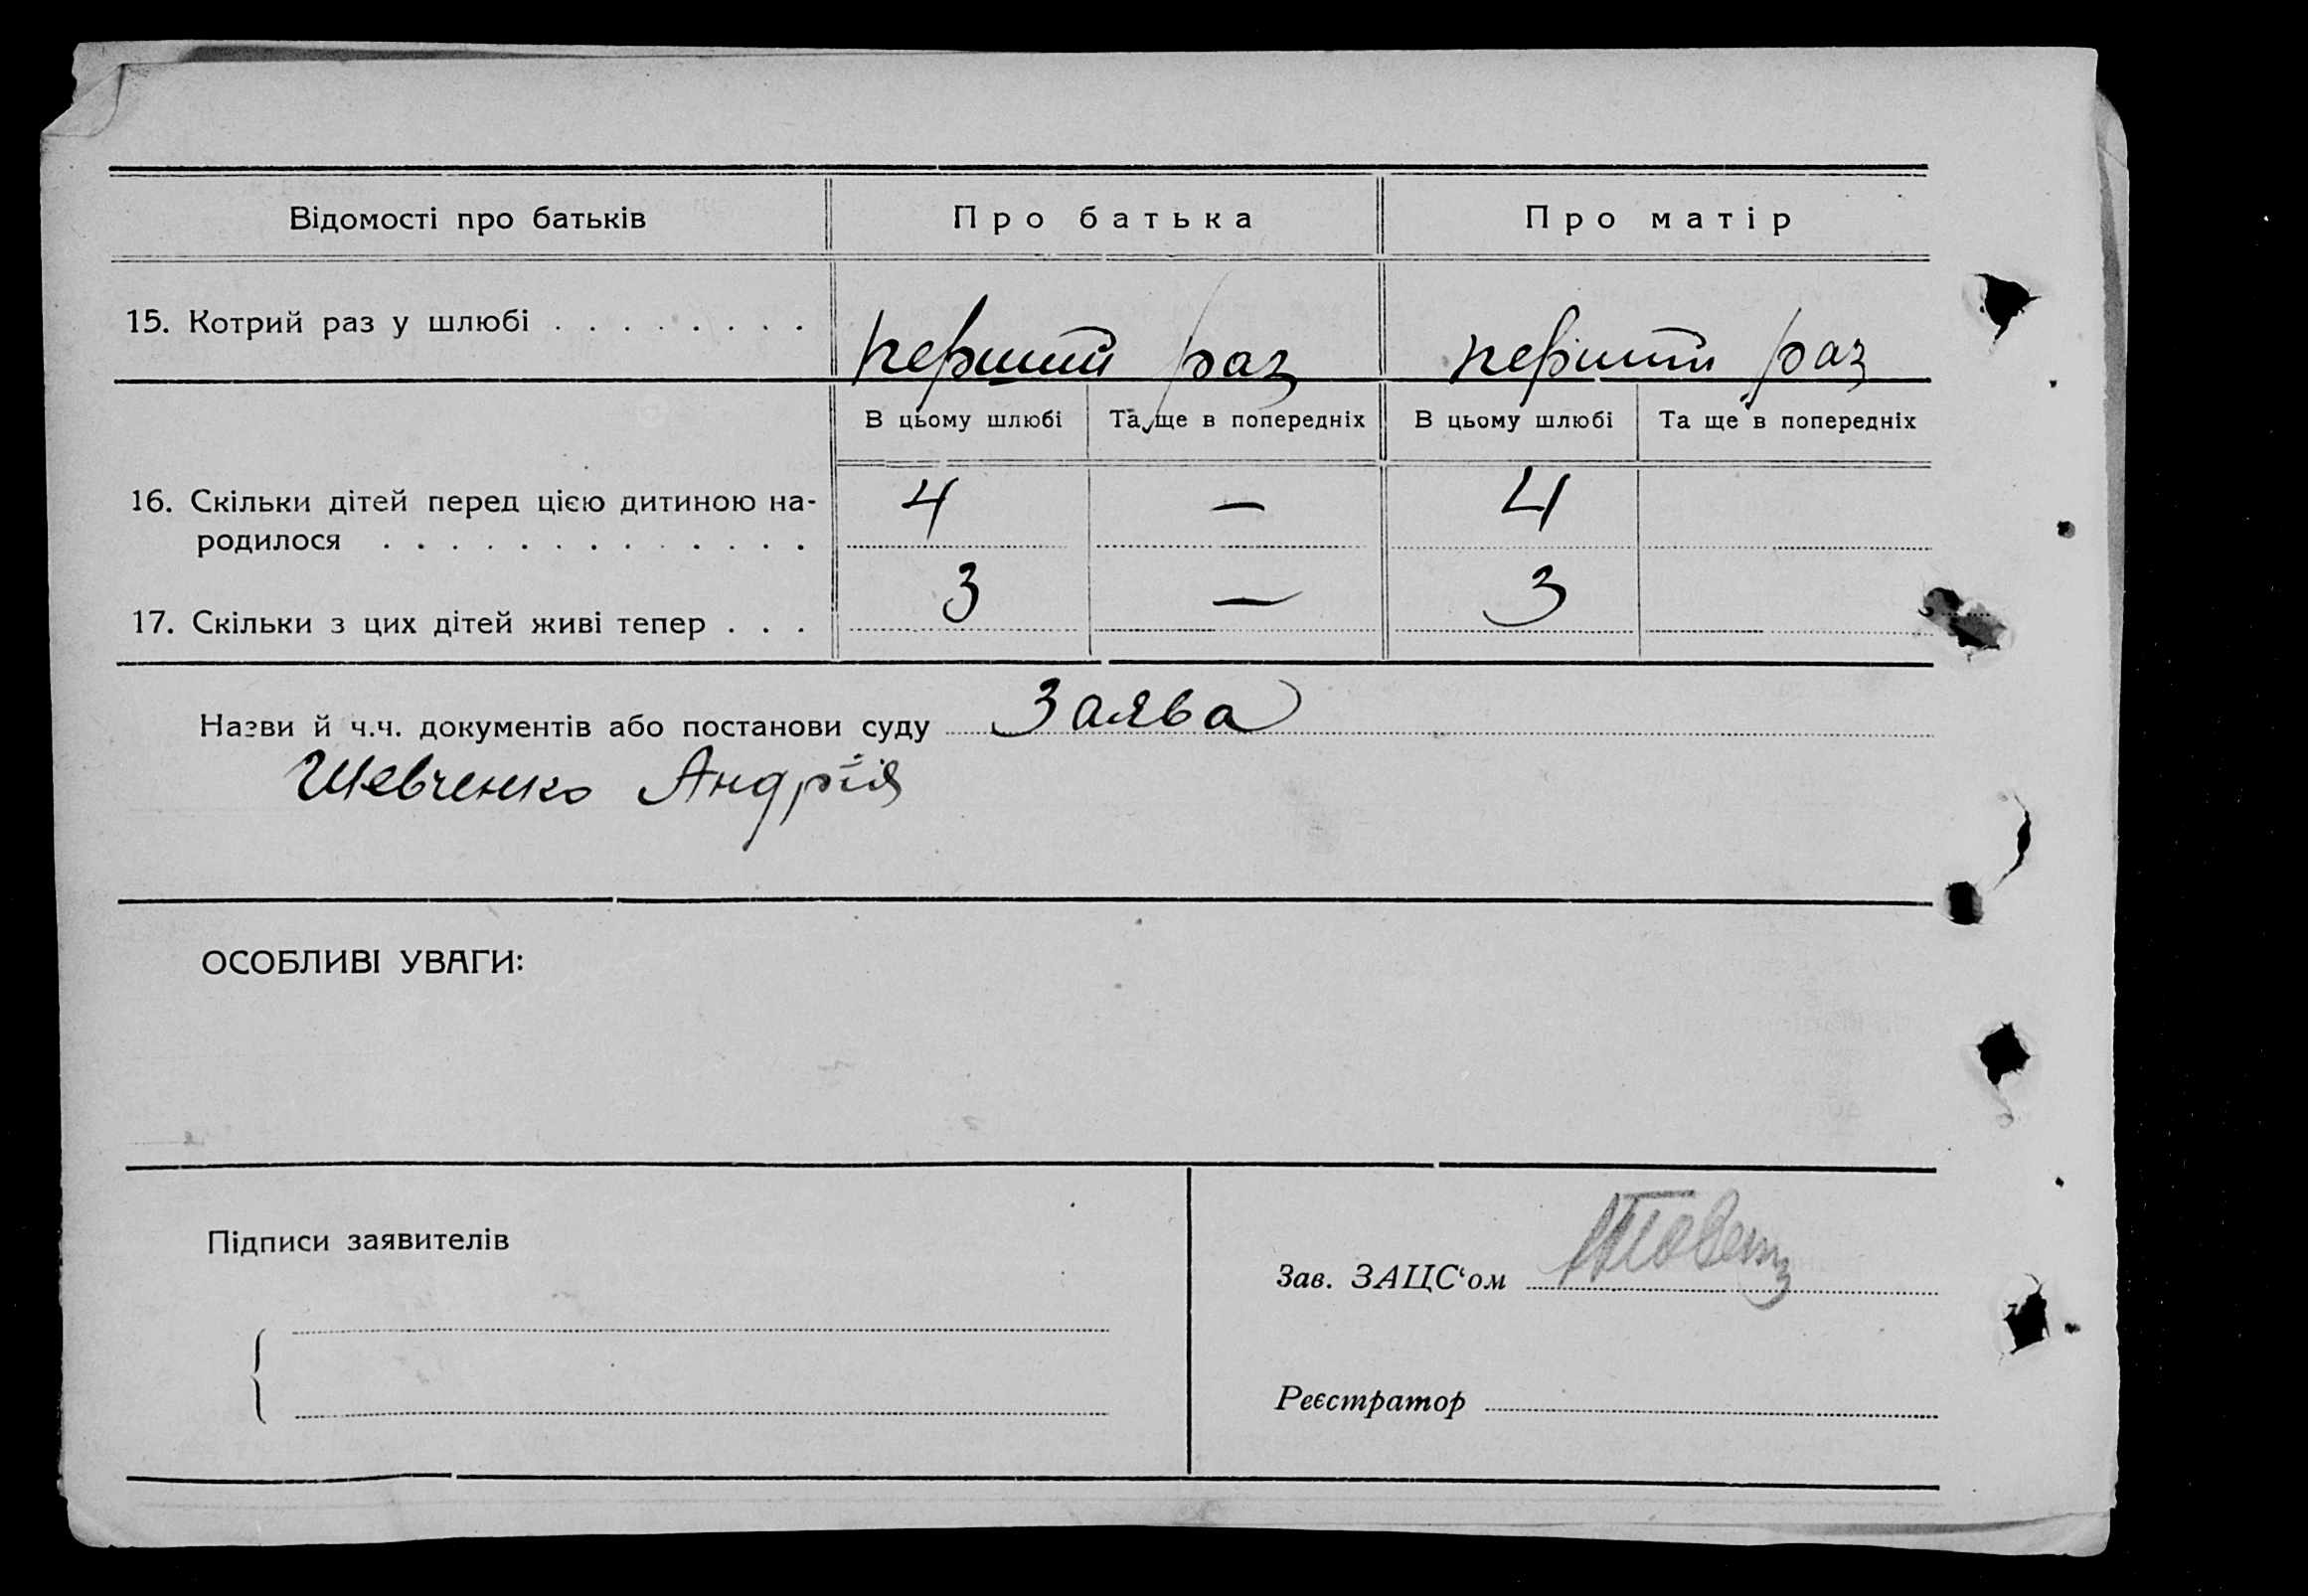 Відомості про батьків Про батька Про матір
15. Котрий раз у шлюбі . . . . . . . . перший раз перший раз
В цьому шлюбі Та ще в попередніх В цьому шлюбі Та ще в попередніх
16. Скільки дітей перед цією дитиною на- 4 — 4
родилося . . . . . . . . . . . . .
17. Скільки з цих дітей живі тепер . . . 3 — 3
Назви й ч.ч. документів або постанови суду Заява
Шевченко Андрія
ОСОБЛИВІ УВАГИ:
Підписи заявителів
Зав. ЗАЦС‘ом
Реєстратор